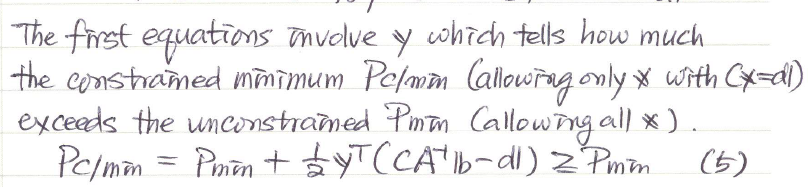 The first equations involve y which tells how much
the constrained minimum Pc/min (allowing only x with Cx=d)
exceeds the unconstrained Pmin (allowing all x).
Pc/min = Pmin + ½ yᵀ(CA⁻¹b-d) ≥ Pmin (5)